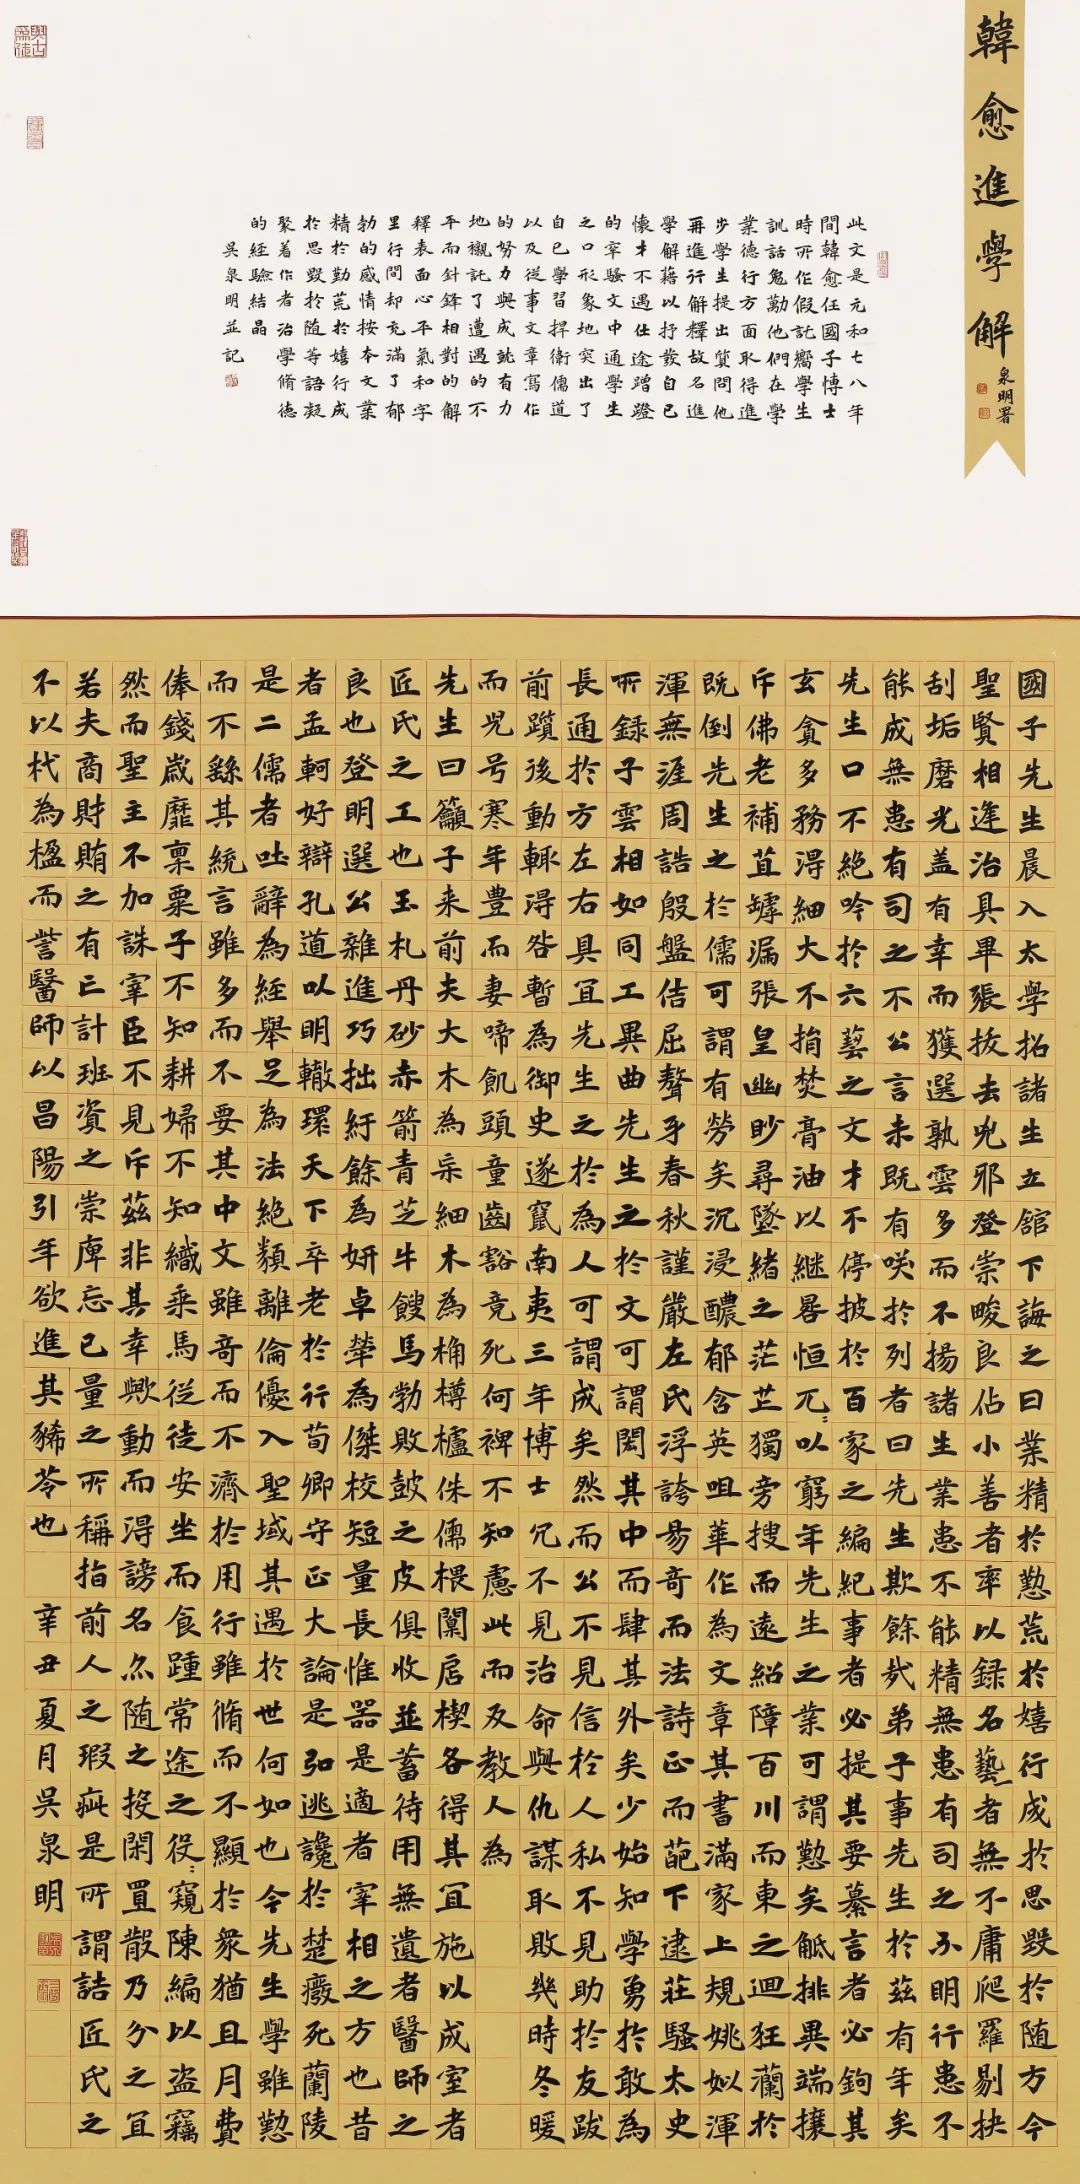 韓愈進學解
泉明署
與古為徒
此文是元和七八年
間韓愈任國子博士
時所作假託嚮學生
訓話勉勵他們在學
業德行方面取得進
步學生提出質問他
再進行解釋故名進
學解藉以抒發自己
懷才不遇仕途蹭蹬
的牢騷文中通學生
之口形象地突出了
自己學習捍衛儒道
以及從事文章寫作
的努力與成就有力
地襯託了遭遇的不
平而針鋒相對的解
釋表面心平氣和字
里行間却充滿了郁
勃的感情按本文業
精於勤荒於嬉行成
於思毀於随等語凝
聚着作者治學脩德
的經驗結晶
吳泉明並記
國子先生晨入太學招諸生立館下誨之曰業精於勤荒於嬉行成於思毀於随方今
聖賢相逢治具畢張拔去兇邪登崇畯良佔小善者率以録名藝者無不庸爬羅剔抉
刮垢磨光盖有幸而獲選孰雲多而不揚諸生業患不能精無患有司之不明行患不
能成無患有司之不公言未既有咲於列者曰先生欺餘㢤弟子事先生於茲有年矣
先生口不絕吟於六藝之文手不停披於百家之編紀事者必提其要纂言者必鉤其
玄貪多務淂細大不捐焚膏油以継晷恒兀:以窮年先生之業可謂勤矣觝排異端攘
斥佛老補苴罅漏張皇幽眇尋墜緒之茫芒獨旁搜而遠紹障百川而東之迴狂瀾於
既倒先生之於儒可謂有勞矣沉浸醲郁含英咀華作為文章其書滿家上規姚姒渾
渾無涯周誥殷盤佶屈聱牙春秋謹嚴左氏浮誇易奇而法詩正而葩下逮莊騷太史
所録子雲相如同工異曲先生之於文可謂閎其中而肆其外矣少始知學勇於敢為
長通於方左右具宜先生之於為人可謂成矣然而公不見信於人私不見助於友跋
前躓後動輒淂咎暫為御史遂竄南夷三年博士冗不見治命與仇謀取敗幾時冬暖
而兒号寒年豐而妻啼飢頭童齒豁竟死何裨不知慮此而反教人為
先生曰籲子来前夫大木為杗細木為桷樽櫨侏儒椳闑扂楔各得其宜施以成室者
匠氏之工也玉札丹砂赤箭青芝牛餿馬勃敗鼓之皮俱收並蓄待用無遺者醫師之
良也登明選公雜進巧拙紆餘為妍卓犖為傑校短量長惟器是適者宰相之方也昔
者孟軻好辯孔道以明轍環天下卒老於行荀卿守正大論是弘逃讒於楚癈死蘭陵
是二儒者吐辭為經舉足為法絕類離倫優入聖域其遇於世何如也今先生學雖勤
而不繇其統言雖多而不要其中文雖奇而不濟於用行雖脩而不顯於衆猶且月費
俸錢歲靡稟粟子不知耕婦不知織乘馬從徒安坐而食踵常途之役:窺陳編以盜竊
然而聖主不加誅宰臣不見斥茲非其幸歟動而淂謗名亦随之投閑置散乃分之宜
若夫商財賄之有亡計班資之崇庳忘已量之所稱指前人之瑕疵是所謂詰匠氏之
不以杙為楹而訾醫師以昌陽引年欲進其豨苓也 辛丑夏月吳泉明